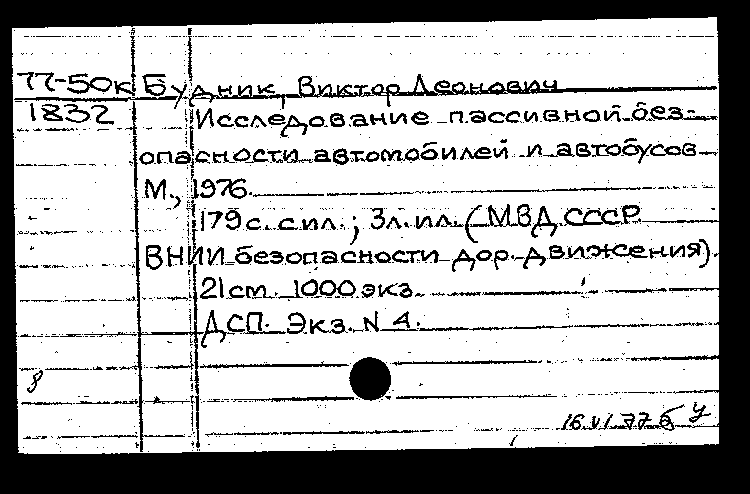 77-50к Будник, Виктор Леонович
1832 Исследование пассивной без-
опасности автомобилей и автобусов
М., 1976.
179 с. с ил.; 3л. ил. (МВД СССР
ВНИИ безопасности дор. движения).
21 cm. 1000 экз.
ДСП. Экз. N 4.
16.VI.77